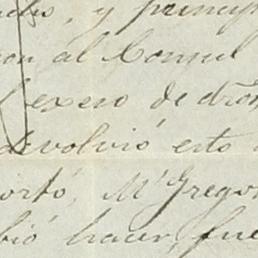 y princip
al Consul
exceso de
devolvió esto
ortó, Mr Gregor
bió hacer, fue